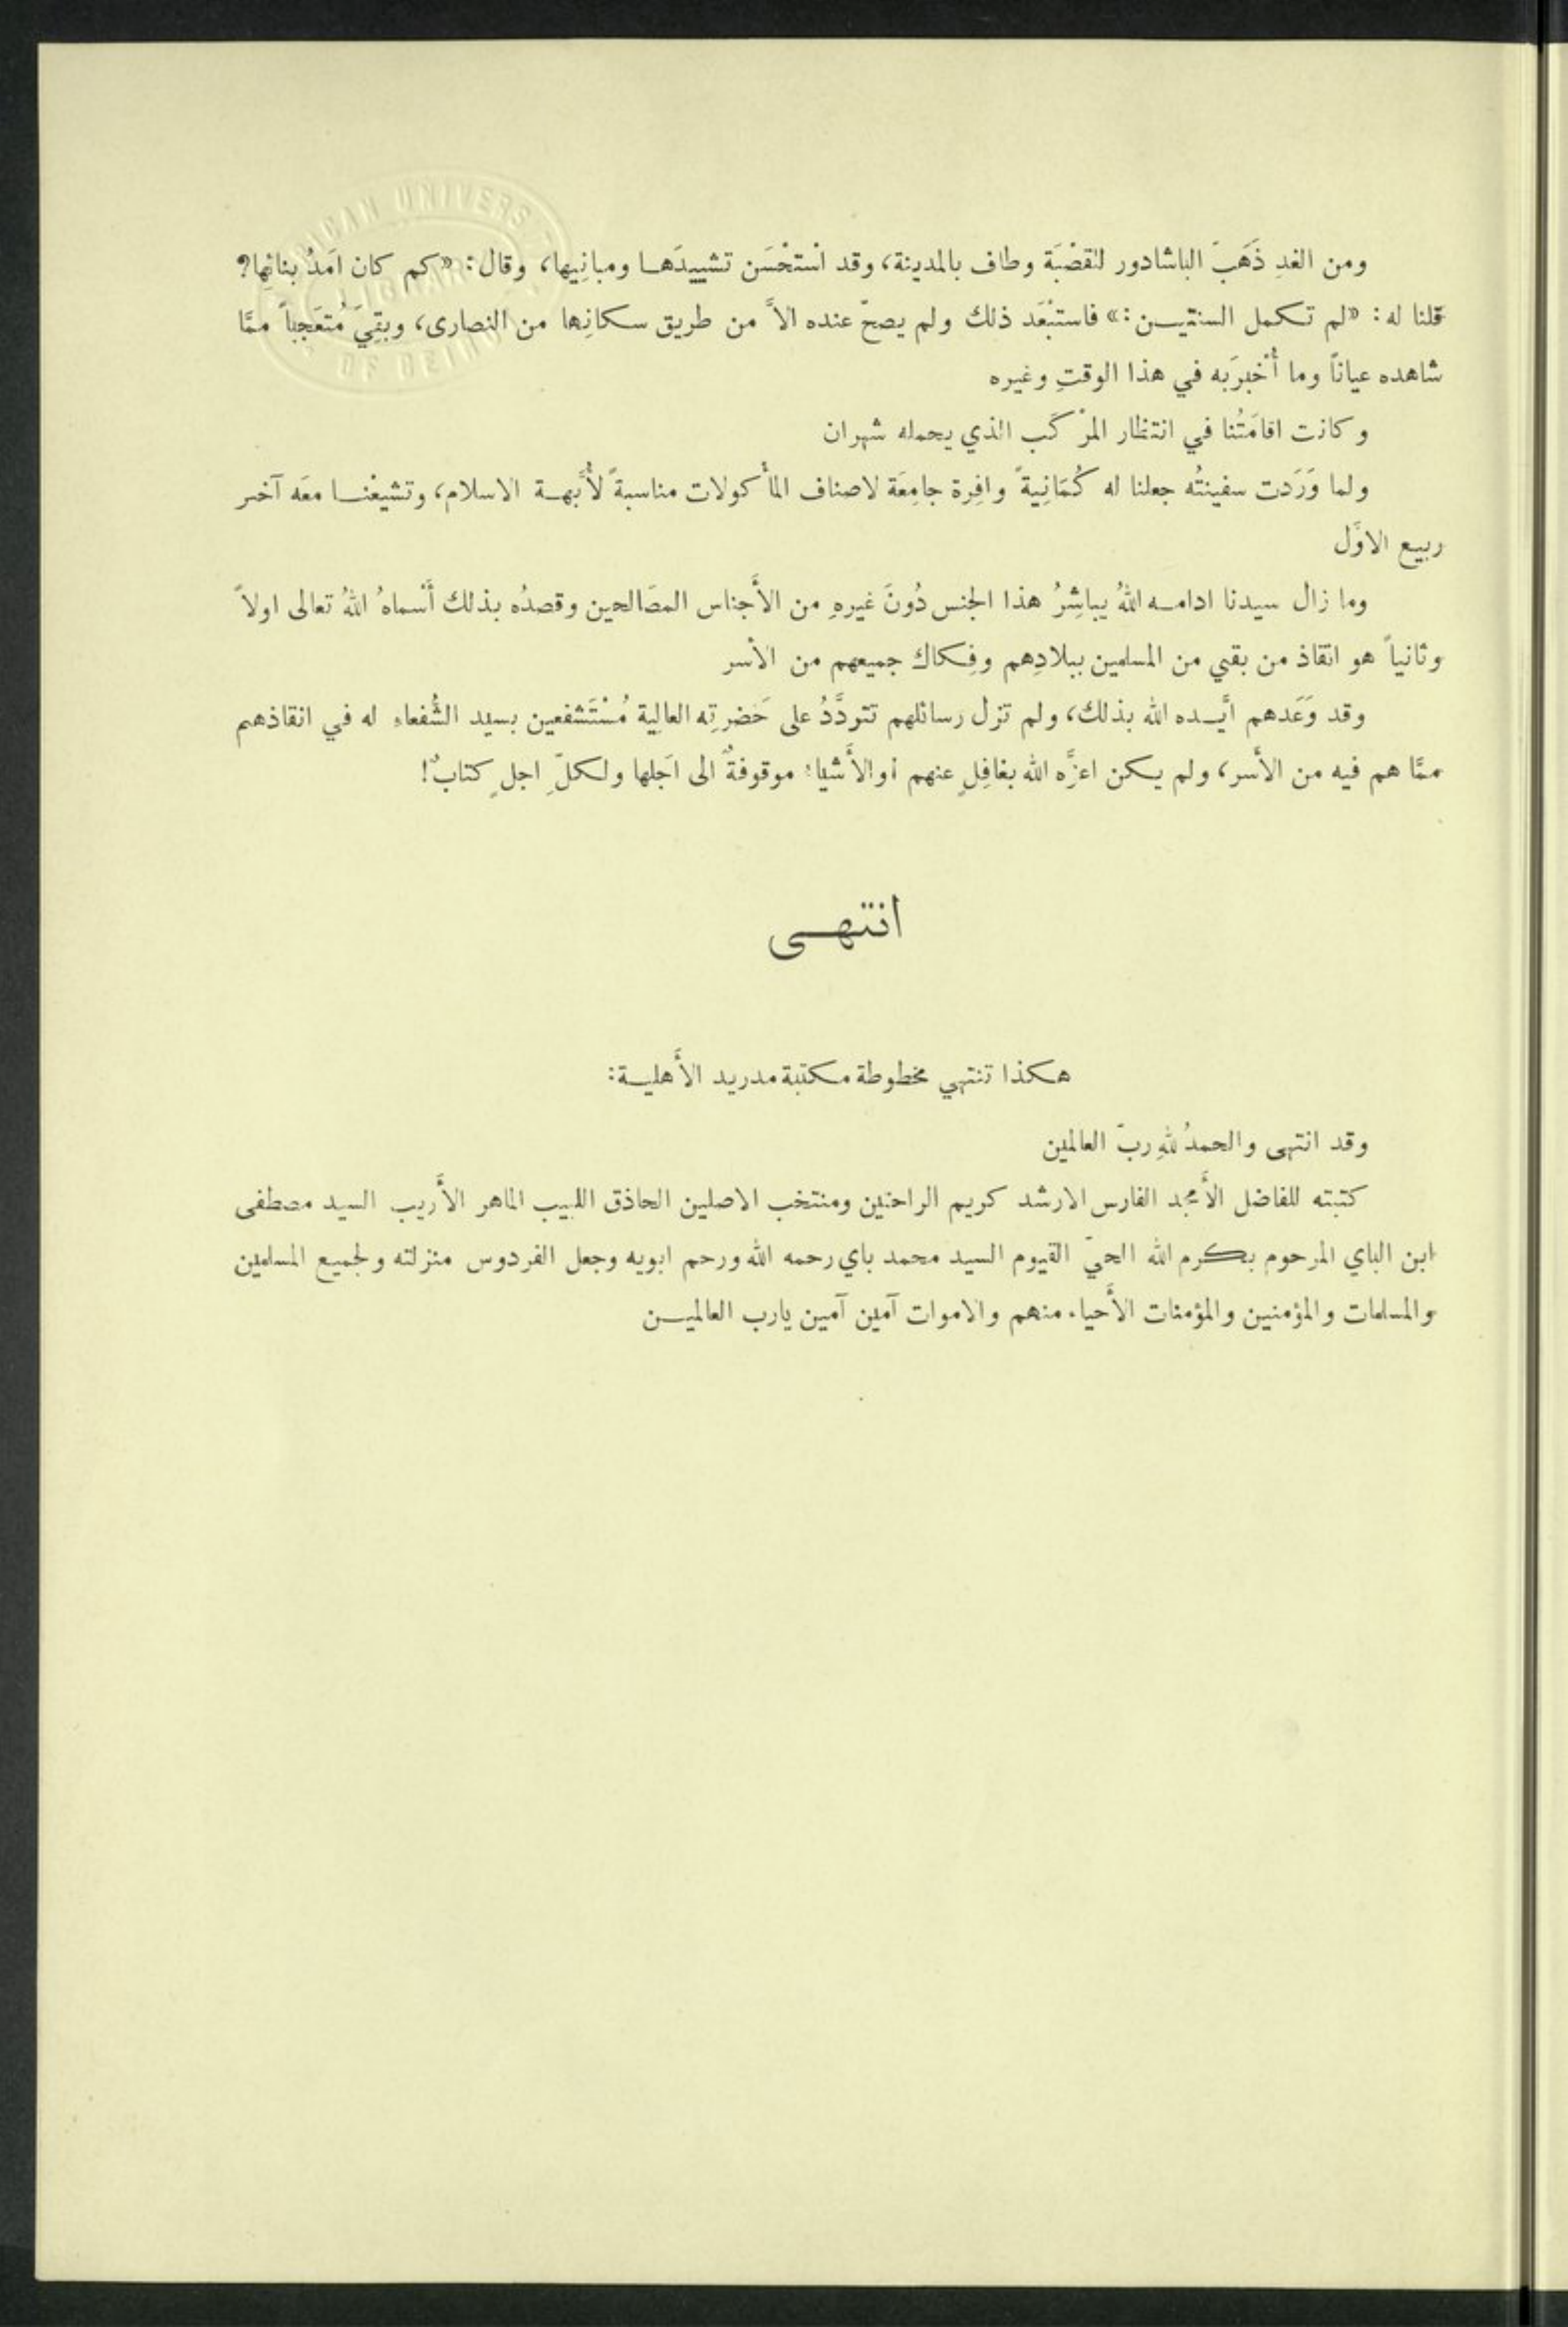 ومن الغدِ ذَهَبَ الباشادور للقصْبَة وطاف بالمدينة، وقد اسْتحْسَن تشييدَهـا ومبانِيها، وقال: «كم كان اَمَدُ بنائِها؟
قلنا له: «لم تـكمل السنتيـن:» فاستبْعَد ذلك ولم يصحّ عنده الاَّ من طريق سكانِها من النصارى، وبقِيَ مُتعَجِباً ممَّا
شاهده عياناً وما أُخْبِرَ به في هذا الوقتِ وغيره
وكانت اقامَتُنا في انتظار المرْكَب الذي يحمله شهران
ولما وَرَدت سفينتُه جعلنا له كُمَانِيةً وافِرة جامِعَة لاصناف المأكولات مناسبةً لأُبَّهـة الاسلام، وتشيعْنـا معَه آخـر
ربيع الاوَّل
وما زال سيدنا ادامـه اللهُ يباشِرُ هذا الجنس دُونَ غيرهِ من الأَجناس المصَالحين وقصدُه بذلك أَسْماهُ اللهُ تعالى اولاً
وثانياً هو انقاذ من بقي من المسلمين ببلادِهم وفِكاك جميعهم من الأسر
وقد وَعَدهم أيَّـده الله بذلك، ولم تزل رسائلهم تتردَّدُ على حَضرتِه العالِية مُسْتَشفعين بسيد الشُّفعاء له في انقاذهـم
ممَّا هم فيه من الأَسر، ولم يـكن اعزَّه الله بغافِلٍ عنهم أوالأَشياء موقوفةٌ الى اَجَلها ولـكلّ اجلٍ كتابٌ!
انتهـى
هـكذا تنتهي مخطوطة مكتبة مدريد الأَهليـة:
وقد انتهى والحمدُ للهِ ربّ العالمين
كتبته للفاضل الأَمجد الفارس الارشد كريم الراحتين ومنتخب الاصلين الحاذق اللبيب الماهر الأَريب السيد مصطفى
ابن الباي المرحوم بـكرم الله الحيّ القيوم السيد محمد باي رحمه الله ورحم ابويه وجعل الفردوس منزلته ولجميع المسلمين
والمسلمات والمؤمنين والمؤمنات الأَحياء منهم والاموات آمين آمين يارب العالميـن